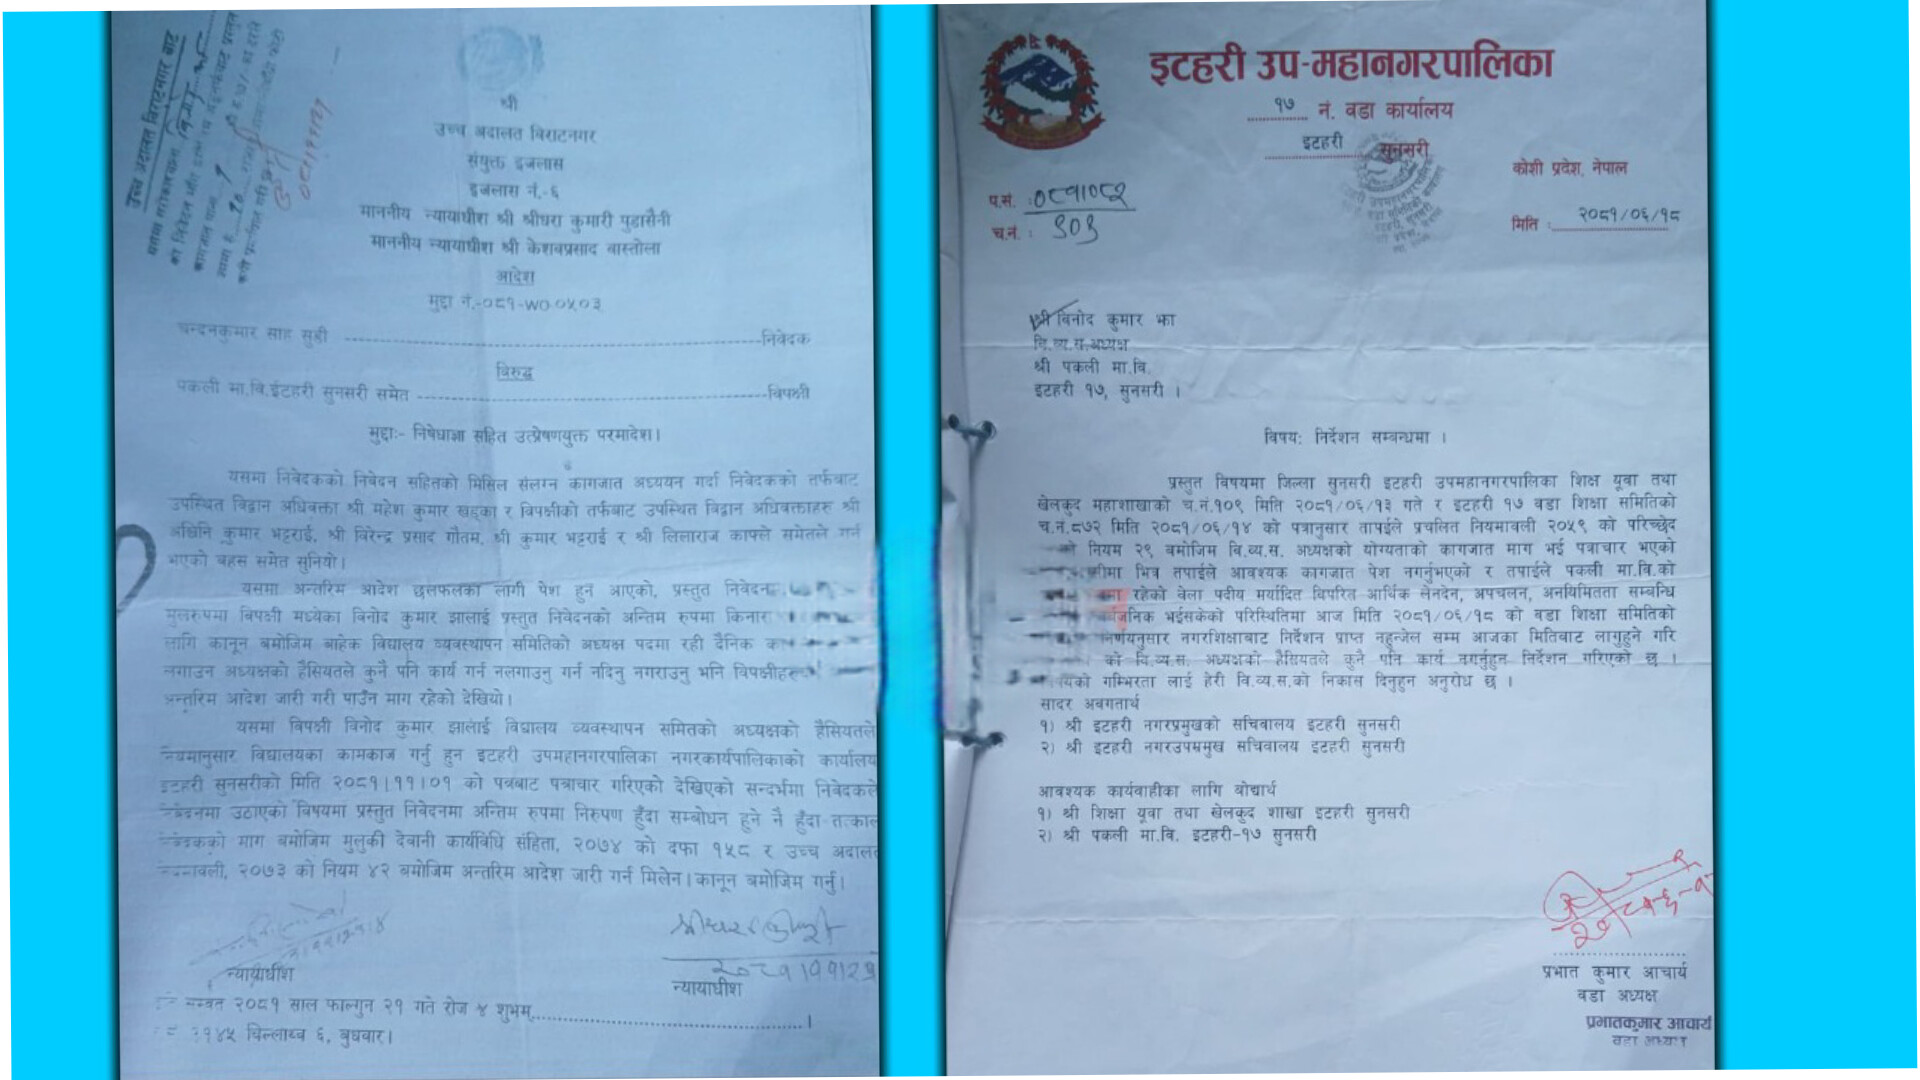 उच्च अदालत विराटनगर बाट
श्री
उच्च अदालत विराटनगर
संयुक्त इजलास
इजलास नं.-६
माननीय न्यायाधीश श्री श्रीधरा कुमारी पुडासैनी
माननीय न्यायाधीश श्री केशवप्रसाद बास्तोला
आदेश
मुद्दा नं.-०८१-WO-०५०३
चन्दनकुमार साह सुडी ----------निवेदक
विरुद्ध
पकली मा.वि.ईटहरी सुनसरी समेत ----------विपक्षी
मुद्दाः- निषेधाज्ञा सहित उत्प्रेषणयुक्त परमादेश।
यसमा निवेदकको निवेदन सहितको मिसिल संलग्न कागजात अध्ययन गर्दा निवेदकको तर्फबाट
उपस्थित विद्वान अधिवक्ता श्री महेश कुमार खड्का र विपक्षीको तर्फबाट उपस्थित विद्वान अधिवक्ताहरु श्री
कुमार भट्टराई, श्री विरेन्द्र प्रसाद गौतम, श्री कुमार भट्टराई र श्री लिलाराज काफ्ले समेतले गर्नु
भएको बहस समेत सुनियो।
यसमा अन्तरिम आदेश छलफलका लागी पेश हुन आएको, प्रस्तुत निवेदन
मुलरुपमा विपक्षी मध्येका विनोद कुमार झालाई प्रस्तुत निवेदनको अन्तिम रुपमा किनार
लागि कानून बमोजिम बाहेक विद्यालय व्यवस्थापन समितिको अध्यक्ष पदमा रही दैनिक
लगाउन अध्यक्षको हैसियतले कुनै पनि कार्य गर्न नलगाउनु गर्न नदिनु नगराउनु भनि विपक्षीहरु
अन्तरिम आदेश जारी गरी पाउँन माग रहेको देखियो।
यसमा विपक्षी विनोद कुमार झालाई विद्यालय व्यवस्थापन समितको अध्यक्षको हैसियतले
नियमानुसार विद्यालयका कामकाज गर्नु हुन इटहरी उपमहानगरपालिका नगरकार्यपालिकाको कार्यालय
इटहरी सुनसरीको मिति २०८१|११|०१ को पत्रबाट पत्राचार गरिएको देखिएको सन्दर्भमा निवेदकले
निवेदनमा उठाएको विषयमा प्रस्तुत निवेदनमा अन्तिम रुपमा निरुपण हुँदा सम्बोधन हुने नै हुँदा तत्काल
निवेदकको माग बमोजिम मुलुकी देवानी कार्यविधि संहिता, २०७४ को दफा १५८ र उच्च अदालत
नियमावली, २०७३ को नियम ४२ बमोजिम अन्तरिम आदेश जारी गर्न मिलेन। कानून बमोजिम गर्नु।
न्यायाधीश
२०८१।११।२१
न्यायाधीश
सम्वत २०८१ साल फाल्गुन २१ गते रोज ४ शुभम्..........।
११४५ चिल्लाथ्व ६, बुधवार।
इटहरी उप-महानगरपालिका
१७ नं. वडा कार्यालय
इटहरी सुनसरी
कोशी प्रदेश, नेपाल
प.सं. :०८१।०८२
च.नं. : ३०३
मिति : २०८१/०६/१८
श्री विनोद कुमार झा
वि.व्य.स.अध्यक्ष
श्री पकली मा.वि.
इटहरी १७, सुनसरी ।
विषय: निर्देशन सम्बन्धमा ।
प्रस्तुत विषयमा जिल्ला सुनसरी इटहरी उपमहानगरपालिका शिक्ष यूवा तथा
खेलकुद महाशाखाको च.नं.१०९ मिति २०८१/०६/१३ गते र इटहरी १७ वडा शिक्षा समितिको
च.नं.८७२ मिति २०८१/०६/१४ को पत्रानुसार तापईले प्रचलित नियमावली २०५९ को परिच्छेद
को नियम २९ बमोजिम वि.व्य.स. अध्यक्षको योग्यताको कागजात माग भई पत्राचार भएको
भित्र तपाईले आवश्यक कागजात पेश नगर्नुभएको र तपाईले पकली मा.वि.को
रहेको वेला पदीय मर्यादित विपरित आर्थिक लेनदेन, अपचलन, अनयिमितता सम्बन्धि
भईसकेको परिस्थितिमा आज मिति २०८१/०६/१८ को वडा शिक्षा समितिको
निर्णयनुसार नगरशिक्षाबाट निर्देशन प्राप्त नहुन्जेल सम्म आजका मितिबाट लागुहुने गरि
को वि.व्य.स. अध्यक्षको हैसियतले कुनै पनि कार्य नगर्नुहुन निर्देशन गरिएको छ ।
विषयको गम्भिरता लाई हेरी वि.व्य.स.को निकास दिनुहुन अनुरोध छ ।
सादर अवगतार्थ
१) श्री इटहरी नगरप्रमुखको सचिवालय इटहरी सुनसरी
२) श्री इटहरी नगरउपम्रमुख सचिवालय इटहरी सुनसरी
आवश्यक कार्यवाहीका लागि वोधार्थ
१) श्री शिक्षा यूवा तथा खेलकुद शाखा इटहरी सुनसरी
२) श्री पकली मा.वि. इटहरी-१७ सुनसरी
प्रभात कुमार आचार्य
वडा अध्यक्ष
प्रभातकुमार आचार्य
वडा अध्यक्ष